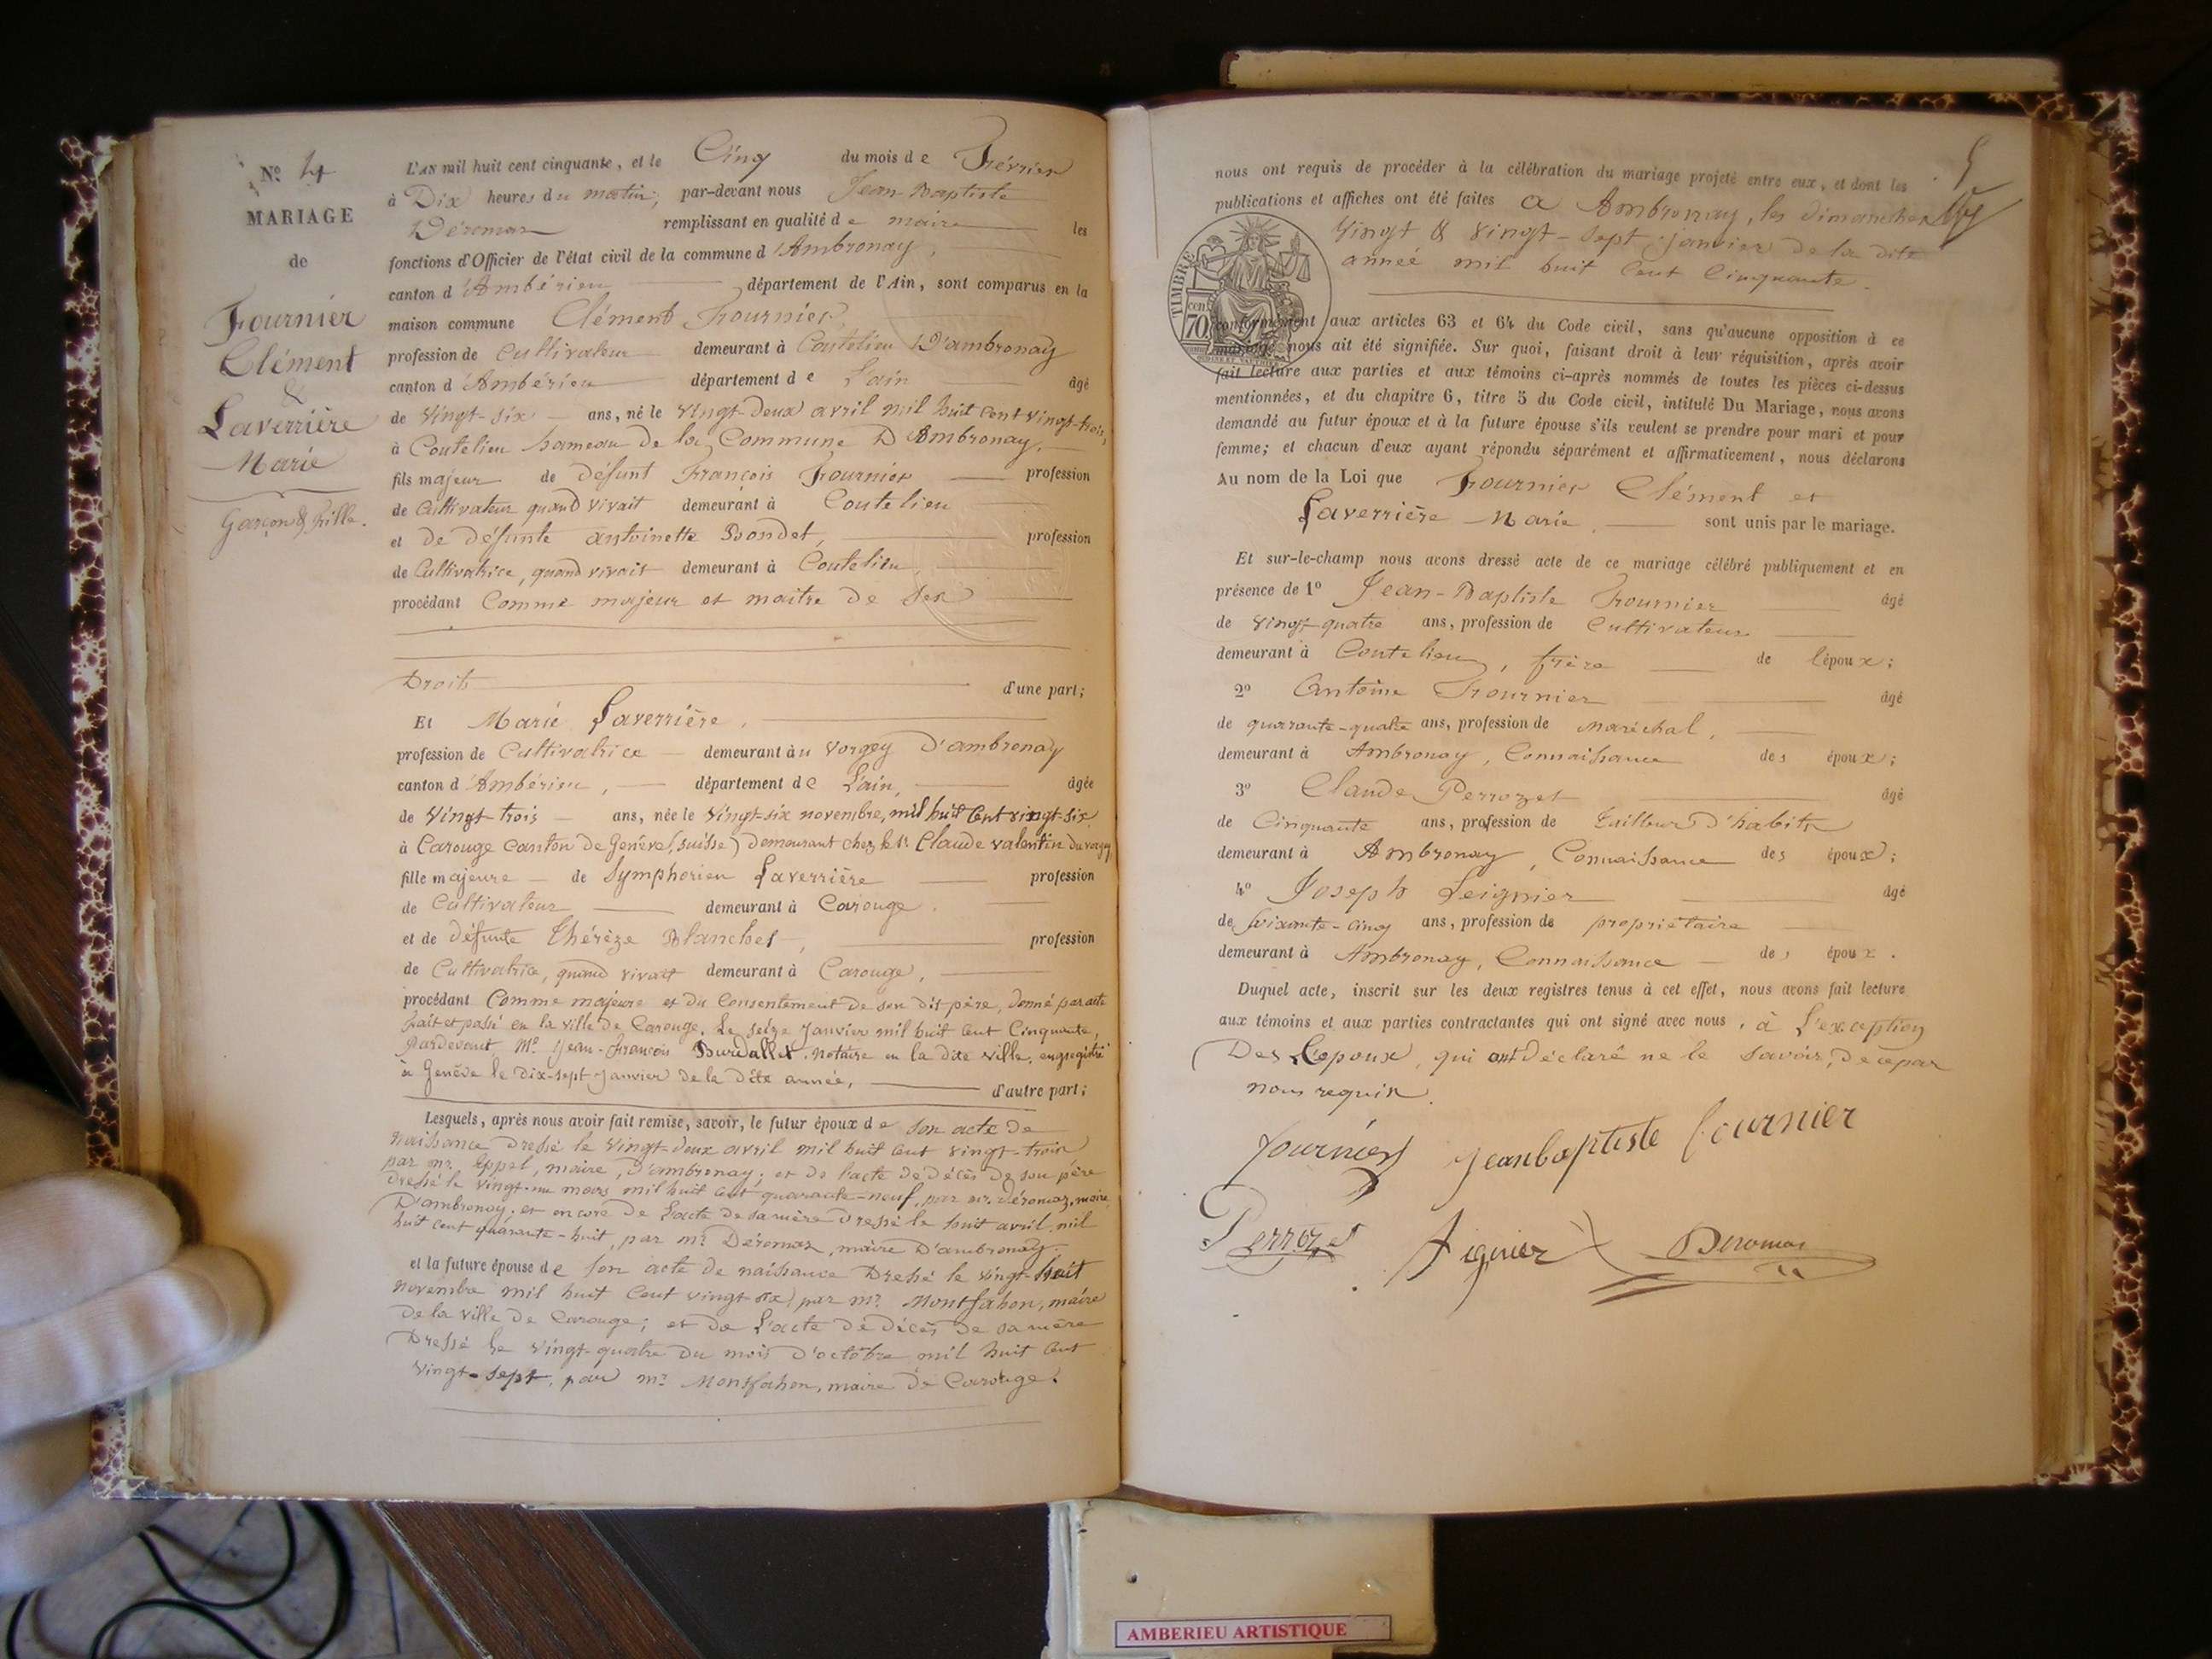 N° 4
MARIAGE
de
Fournier
Clément
&
Laverrière
Marie
Garçon & fille.
L'AN mil huit cent cinquante, et le Cinq du mois de Février
à Dix heures du matin, par-devant nous Jean-Baptiste
Déromas remplissant en qualité de maire les
fonctions d'Officier de l'état civil de la commune d'Ambronay,
canton d'Ambérieu département de l'Ain, sont comparus en la
maison commune Clément Fournier,
profession de Cultivateur demeurant à Coutelieu D'ambronay
canton d'Ambérieu département de L'ain âgé
de vingt-six ans, né le vingt-deux avril mil huit cent vingt-trois,
à Coutelieu hameau de la Commune D'Ambronay,
fils majeur de défunt François Fournier profession
de Cultivateur quand vivait demeurant à Coutelieu
et de défunte antoinette Bondet, profession
de Cultivatrice, quand vivait demeurant à Coutelieu,
procédant Comme majeur et maître de ses
Droits d'une part;
Et Marie Laverrière,
profession de Cultivatrice demeurant au Vorgey D'ambronay
canton d'Ambérieu, département de L'ain, âgée
de Vingt-trois ans, née le Vingt-six novembre, mil huit Cent vingt-six
à Carouge canton de Genève (suisse) Demeurant chez le Sr Claude valentin du vorgey
fille majeure de Symphorien Laverrière profession
de Cultivateur demeurant à Carouge.
et de défunte Thérèze Blanchet, profession
de Cultivatrice, quand vivait demeurant à Carouge,
procédant Comme majeure et du Consentement de son dit père, donné par acte
fait et passé en la ville de Carouge, Le seize Janvier mil huit Cent Cinquante,
pardevant Me Jean-François notaire en la dite ville, enregistré
à Genève le Dix-sept Janvier de la dite année, d'autre part;
Lesquels, après nous avoir fait remise, savoir, le futur époux de son acte de
Naissance Dressé le vingt-deux avril mil huit Cent vingt-trois
par mr. Eppel, maire, D'ambronay; et de l'acte de décès de son père
dressé le vingt-un mars mil huit Cent quarante-neuf, par mr. Déromas, maire
D'ambronay; et encore de L'acte de sa mère Dressé le huit avril mil
huit Cent quarante-huit, par mr. Déromas, maire D'ambronay.
et la future épouse de son acte de naissance Dressé le vingt-huit
novembre mil huit Cent vingt-six, par mr. Montfahon, maire
de la ville de Carouge; et de L'acte de décès de sa mère
Dressé le vingt-quatre Du mois D'octobre mil huit Cent
vingt-sept, par mr. Montfahon, maire de Carouge.
5
nous ont requis de procéder à la célébration du mariage projeté entre eux, et dont les
publications et affiches ont été faites à Ambronay, les dimanches
Vingt & vingt-sept janvier de la dite
année mil huit Cent Cinquante.
TIMBRE
cent
70
conformément aux articles 63 et 64 du Code civil, sans qu'aucune opposition à ce
mariage nous ait été signifiée. Sur quoi, faisant droit à leur réquisition, après avoir
fait lecture aux parties et aux témoins ci-après nommés de toutes les pièces ci-dessus
mentionnées, et du chapitre 6, titre 5 du Code civil, intitulé Du Mariage, nous avons
demandé au futur époux et à la future épouse s'ils veulent se prendre pour mari et pour
femme; et chacun d'eux ayant répondu séparément et affirmativement, nous déclarons
Au nom de la Loi que Fournier Clément et
Laverrière Marie sont unis par le mariage.
Et sur-le-champ nous avons dressé acte de ce mariage célébré publiquement et en
présence de 1° Jean-Baptiste Fournier âgé
de vingt-quatre ans, profession de Cultivateur
demeurant à Coutelieu, frère de l'époux;
2° Antoine Fournier âgé
de quarante-quatre ans, profession de maréchal,
demeurant à Ambronay, Connaissance des époux;
3° Claude Perrozet âgé
de Cinquante ans, profession de tailleur d'habits
demeurant à Ambronay, Connaissance des époux;
4° Joseph Leignier âgé
de soixante-cinq ans, profession de propriétaire
demeurant à Ambronay, Connaissance des époux.
Duquel acte, inscrit sur les deux registres tenus à cet effet, nous avons fait lecture
aux témoins et aux parties contractantes qui ont signé avec nous, à L'exception
Des Lepoux, qui ont déclaré ne le savoir, de ce par
nous requis.
fournier jeanbaptiste fournier
Perrozet Deromas
AMBERIEU ARTISTIQUE